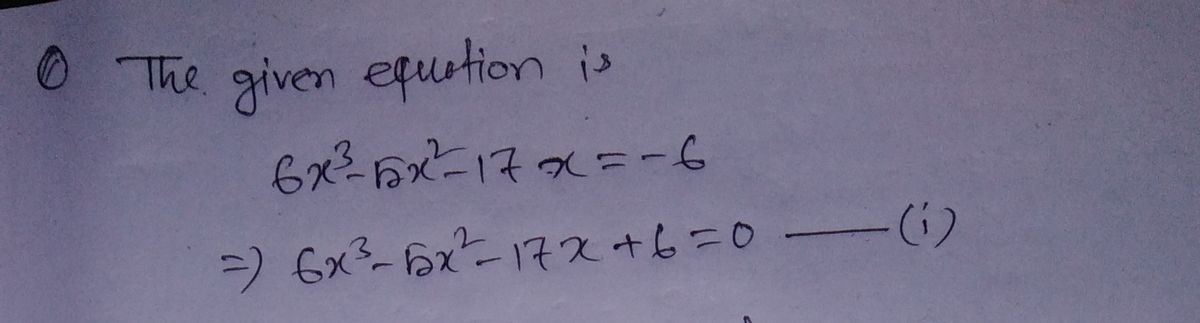 ① The given equation is
6x³-5x²-17x=-6
=) 6x³-5x²-17x+6=0 —(i)